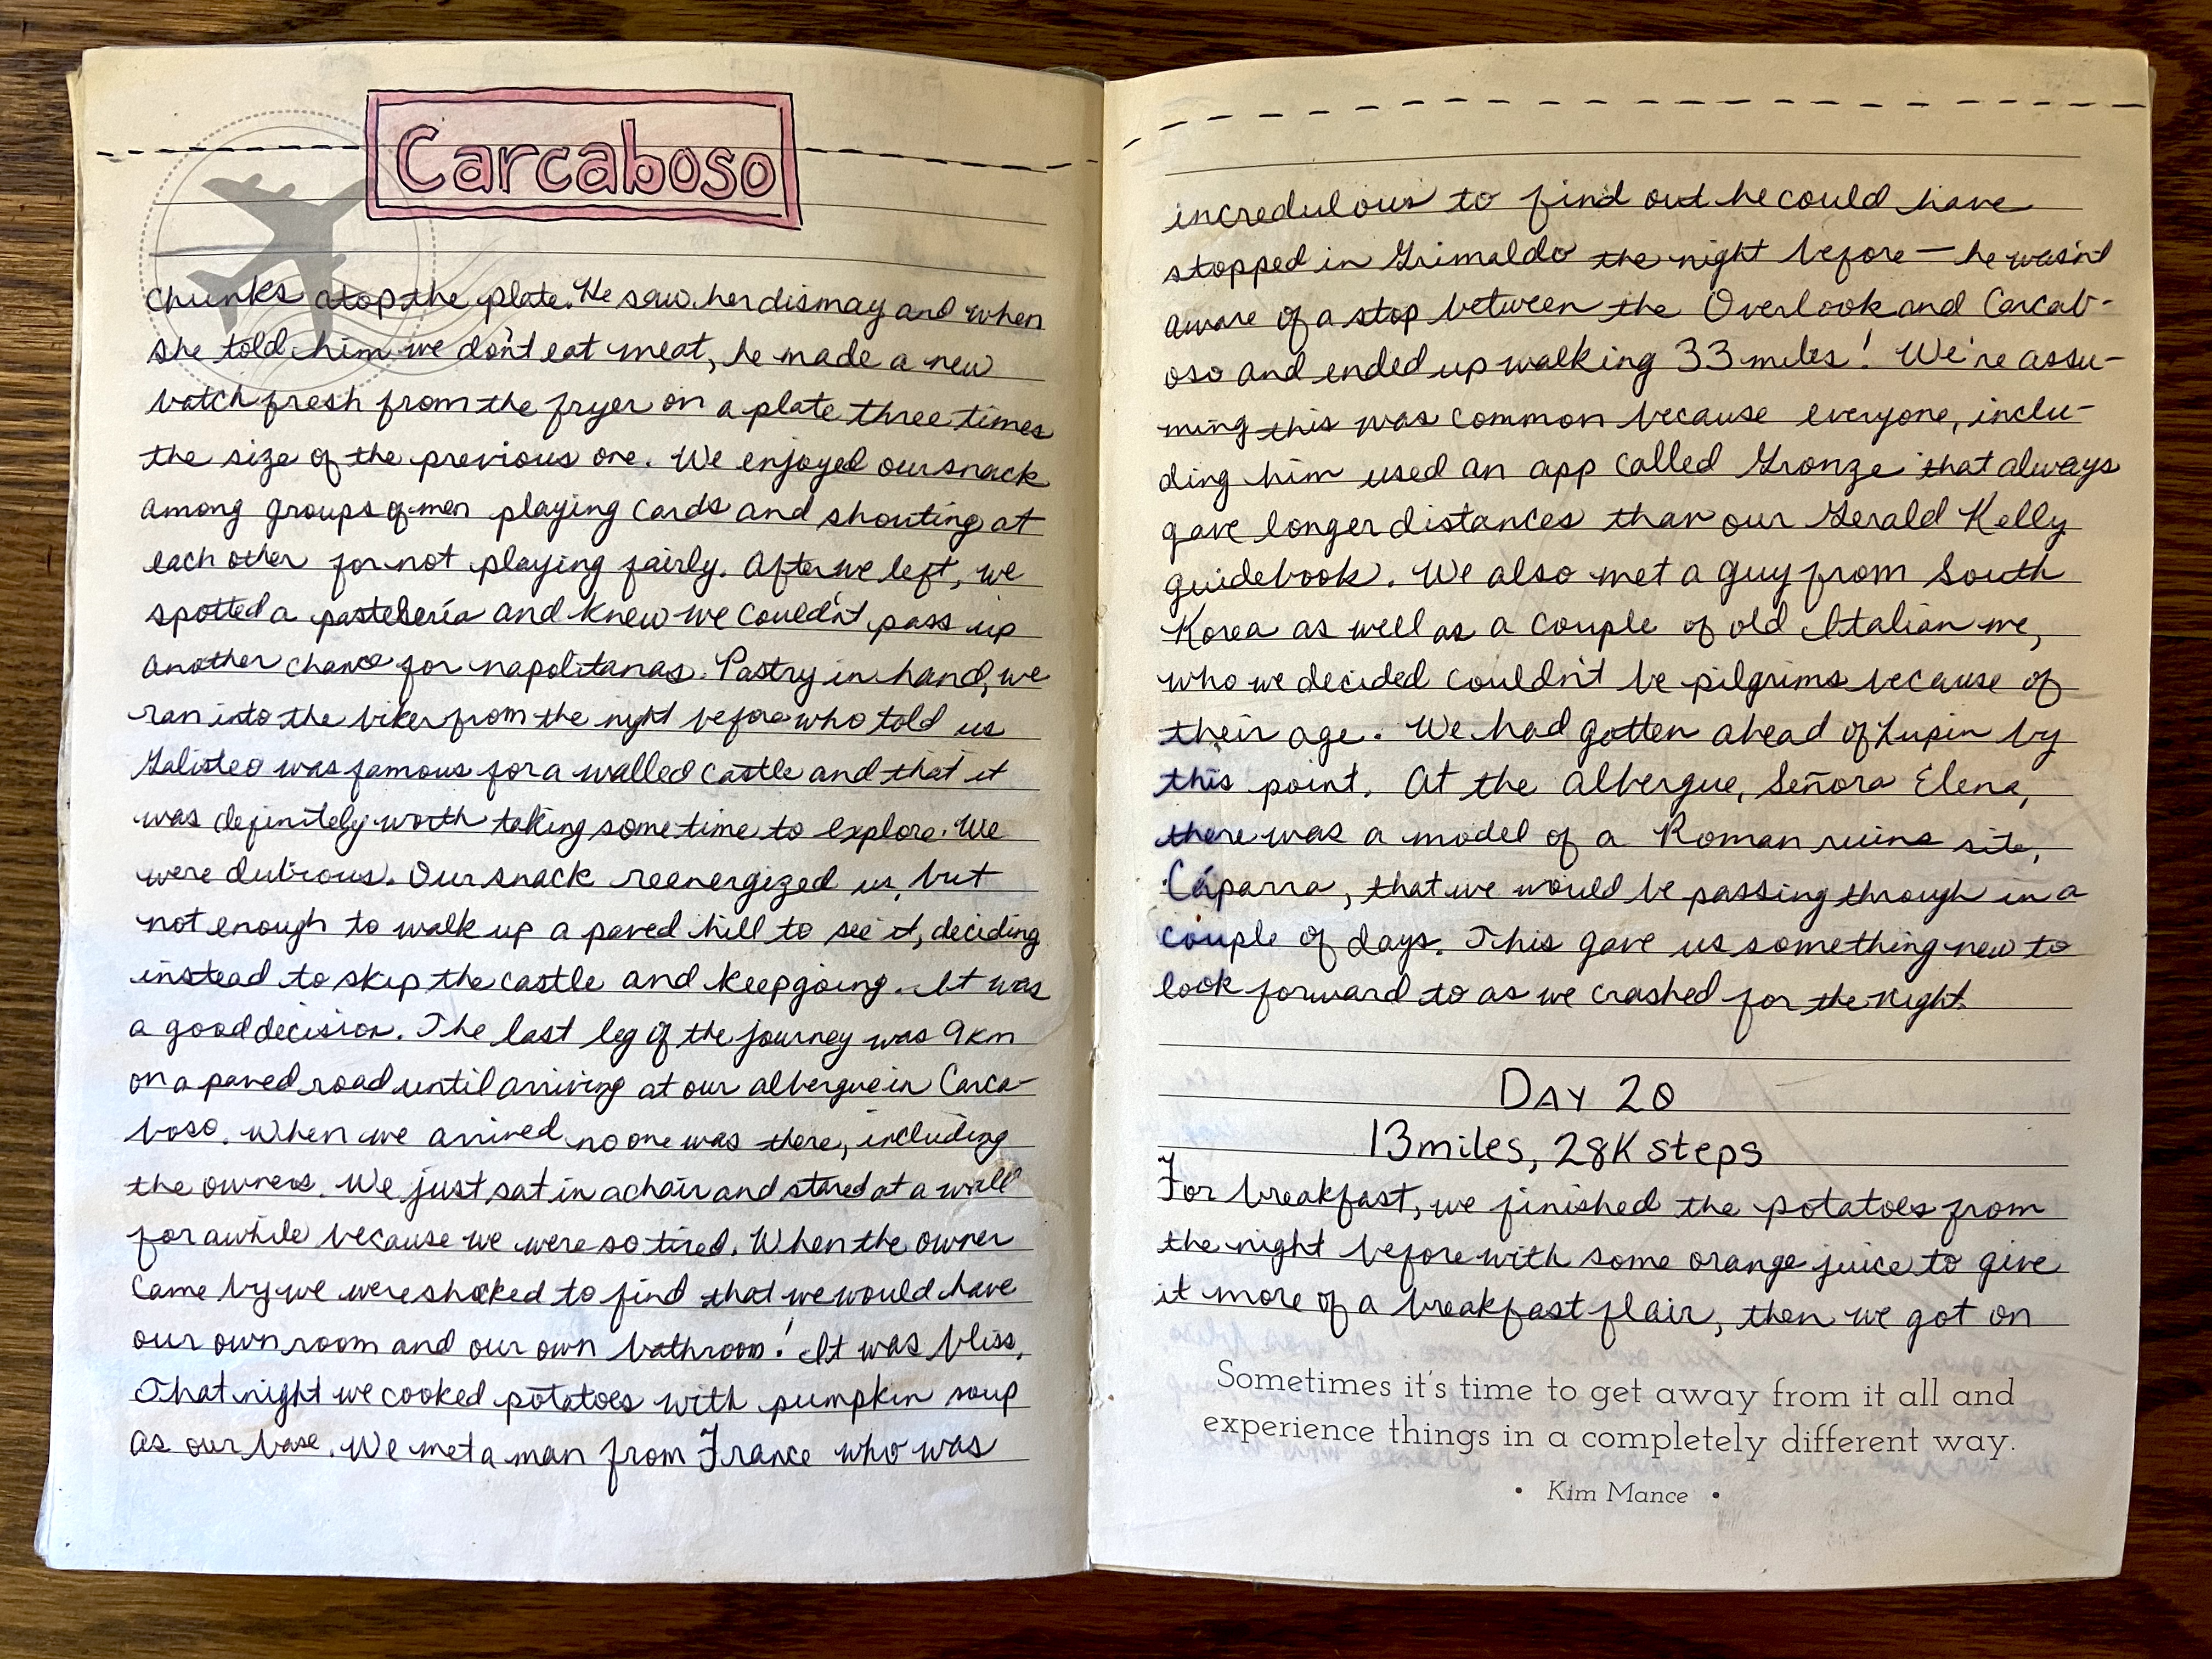 Carcaboso
chunks atop the plate. He saw her dismay and when
she told him we don't eat meat, he made a new
batch fresh from the fryer on a plate three times
the size of the previous one. We enjoyed our snack
among groups of men playing cards and shouting at
each other for not playing fairly. After we left, we
spotted a pastelería and knew we couldn't pass up
another chance for napolitanas. Pastry in hand, we
ran into the biker from the night before who told us
Galisteo was famous for a walled castle and that it
was definitely worth taking some time to explore. We
were dubious. Our snack reenergized us, but
not enough to walk up a paved hill to see it, deciding
instead to skip the castle and keep going. It was
a good decision. The last leg of the journey was 9km
on a paved road until arriving at our albergue in Carca-
boso. When we arrived no one was there, including
the owners. We just sat in a chair and stared at a wall
for awhile because we were so tired. When the owner
came by we were shocked to find that we would have
our own room and our own bathroom! It was bliss.
That night we cooked potatoes with pumpkin soup
as our base. We met a man from France who was
incredulous to find out he could have
stopped in Grimaldo the night before — he wasn't
aware of a stop between the Overlook and Carcab-
oso and ended up walking 33 miles! We're assu-
ming this was common because everyone, inclu-
ding him used an app called Gronze that always
gave longer distances than our Gerald Kelly
guidebook. We also met a guy from South
Korea as well as a couple of old Italian me,
who we decided couldn't be pilgrims because of
their age. We had gotten ahead of Lupin by
this point. At the albergue, Señora Elena,
there was a model of a Roman ruins site,
Cáparra, that we would be passing through in a
couple of days. This gave us something new to
look forward to as we crashed for the night.
DAY 20
13 miles, 28K steps
For breakfast, we finished the potatoes from
the night before with some orange juice to give
it more of a breakfast flair, then we got on
Sometimes it's time to get away from it all and
experience things in a completely different way.
• Kim Mance •